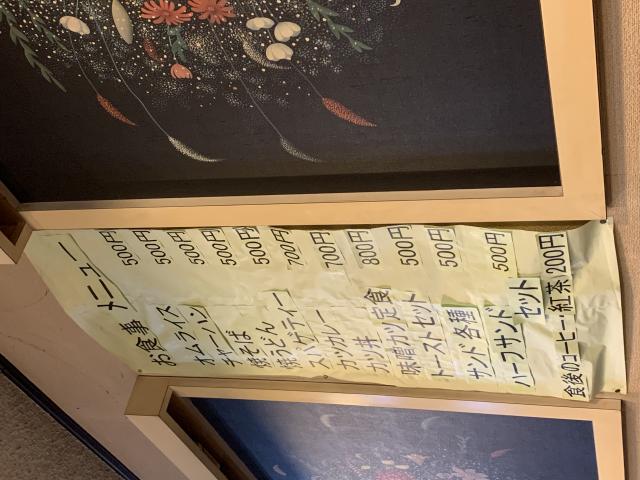 お食事 メニュー
オムライス 500円
チャーハン 500円
焼そば 500円
焼うどん 500円
スパゲティー 500円
カツカレー 700円
カツ丼 700円
味噌カツ定食 800円
トーストセット 500円
サンド各種 500円
ハーフサンドセット 500円
食後のコーヒー・紅茶 200円